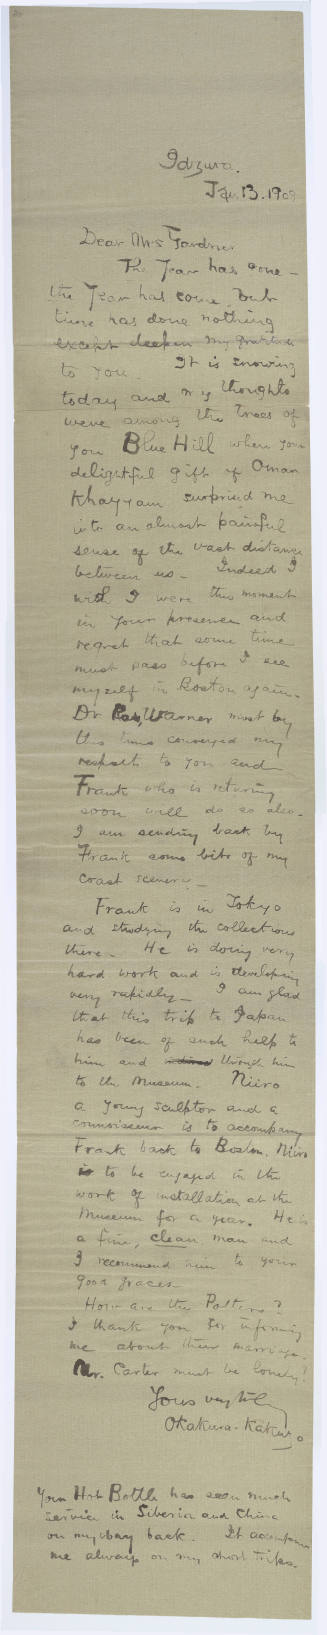 Idzura.
Jan 13. 1909
Dear Mrs Gardner
The Year has gone -
the Year has come, but
time has done nothing
except deepen my gratitude
to you. It is snowing
today and my thoughts
were among the trees of
you Blue Hill when your
delightful gift of Omar
Khayyam surprised me
into an almost painful
sense of the vast distance
between us - Indeed I
wish I were this moment
in your presence and
regret that some time
must pass before I see
myself in Boston again -
Dr Ross, Warner must by
this time conveyed my
respects to you and
Frank who is returning
soon will do so also -
I am sending back by
Frank some bits of my
coast scenery -
Frank is in Tokyo
and studying the collections
there - He is doing very
hard work and is developing
very rapidly - I am glad
that this trip to Japan
has been of such help to
him and through him
to the Museum. Niiro
a young sculptor and a
connoisseur is to accompany
Frank back to Boston. Niiro
is to be engaged in the
work of installation at the
Museum for a year. He is
a fine, clean man and
I recommend him to your
good graces
How are the Potters?
I thank you for informing
me about their marriage.
Mr. Carter must be lonely!
Yours very truly
Okakura-Kakuzo
Your Hot Bottle has seen much
service in Siberia and China
on my way back. It accompanies
me always on my short trips.